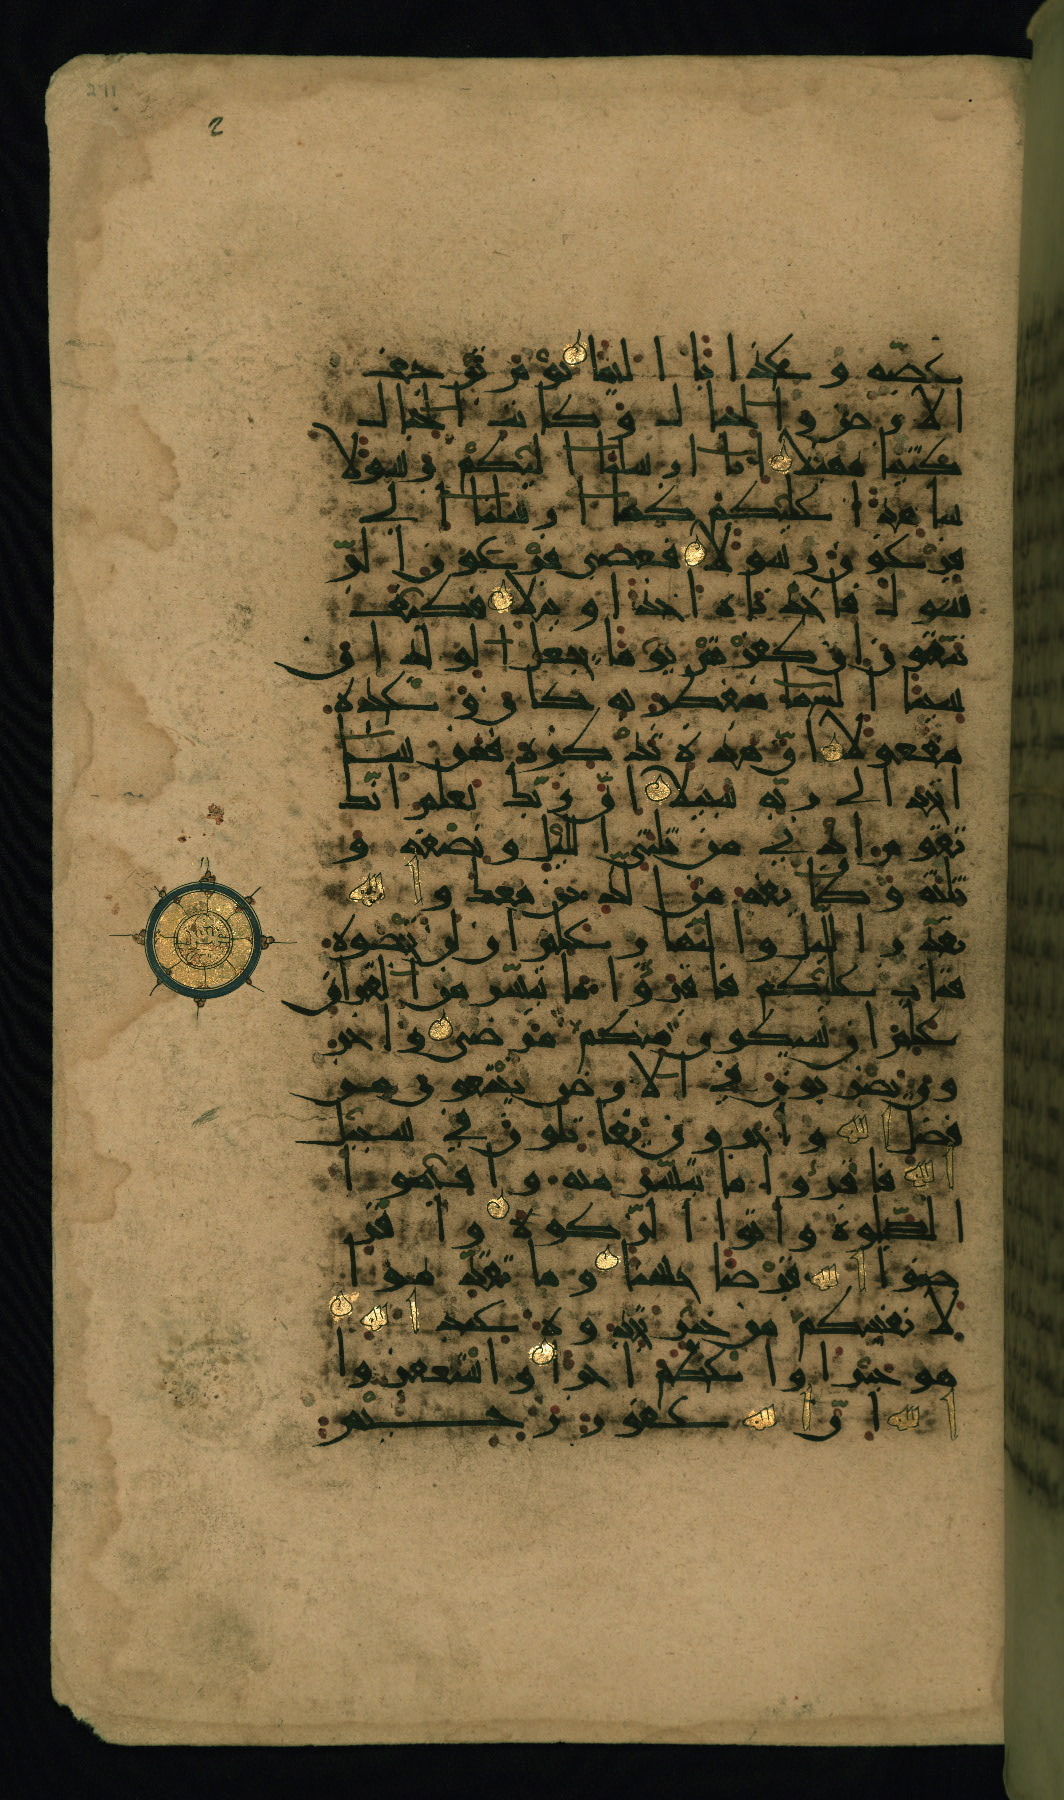 211
2
غصة وعذابا اليما يوم ترجف
الارض والجبال وكانت الجبال
كثيبا مهيلا انا ارسلنا اليكم رسولا
شاهدا عليكم كما ارسلنا الى
فرعون رسولا فعصى فرعون الر
سول فاخذناه اخذا وبيلا فكيف
تتقون ان كفرتم يوما يجعل الولدان
شيبا السما منفطر به كان وعده
مفعولا ان هذه تذكرة فمن شا
اتخذ الى ربه سبيلا ان ربك يعلم انك
تقوم ادنى من ثلثي الليل ونصفه و
ثلثه وطائفة من الذين معك والله
يقدر الليل والنهار علم ان لن تحصوه
فتاب عليكم فاقرؤا ما تيسر من القران
علم ان سيكون منكم مرضى واخر
ون يضربون في الارض يبتغون من
فضل الله واخرون يقاتلون في سبيل
الله فاقرؤا ما تيسر منه واقيموا
الصلوة واتوا الزكوة واقر
ضوا الله قرضا حسنا وما تقدموا
لانفسكم من خير تجدوه عند الله
هو خيرا واعظم اجرا واستغفروا
الله ان الله غفور رحيم